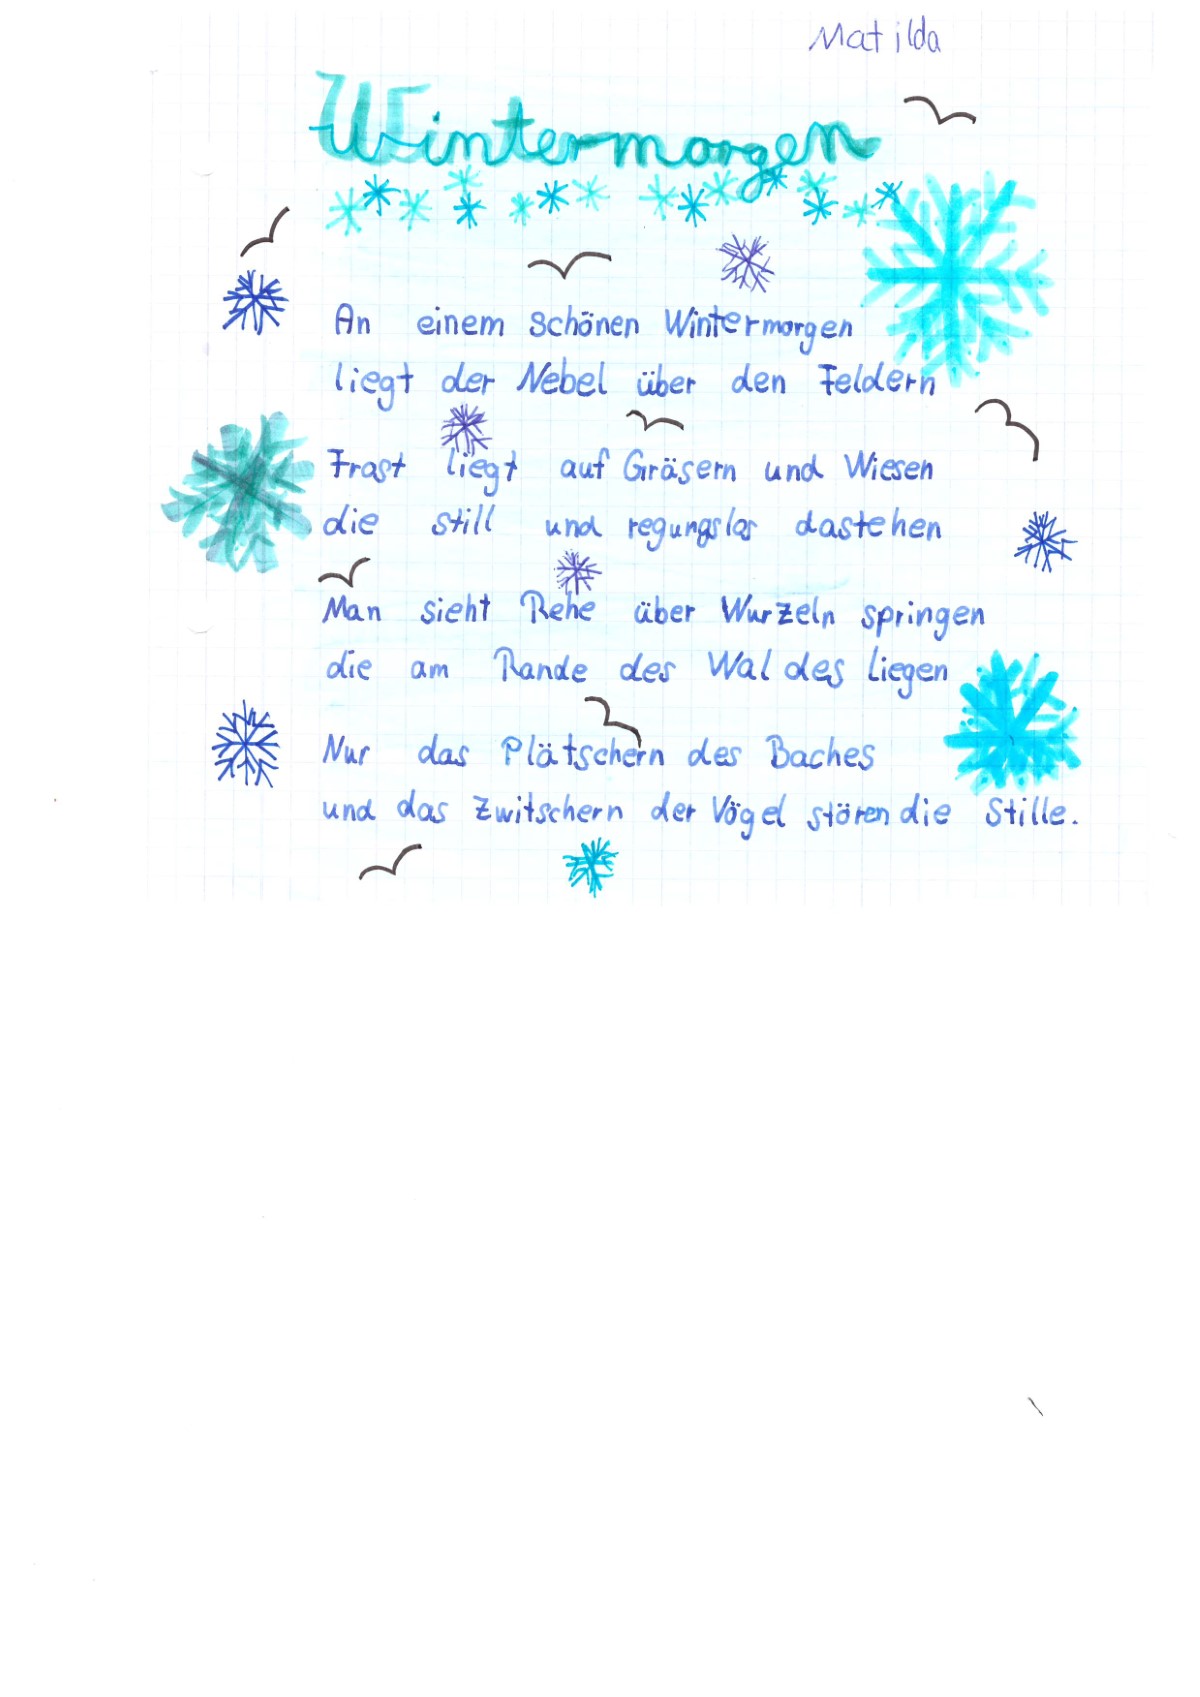 Matilda
Wintermorgen
An einem schönen Wintermorgen
liegt der Nebel über den Feldern
Frost liegt auf Gräsern und Wiesen
die still und regungslos dastehen
Man sieht Rehe über Wurzeln springen
die am Rande des Waldes liegen
Nur das Plätschern des Baches
und das Zwitschern der Vögel stören die Stille.